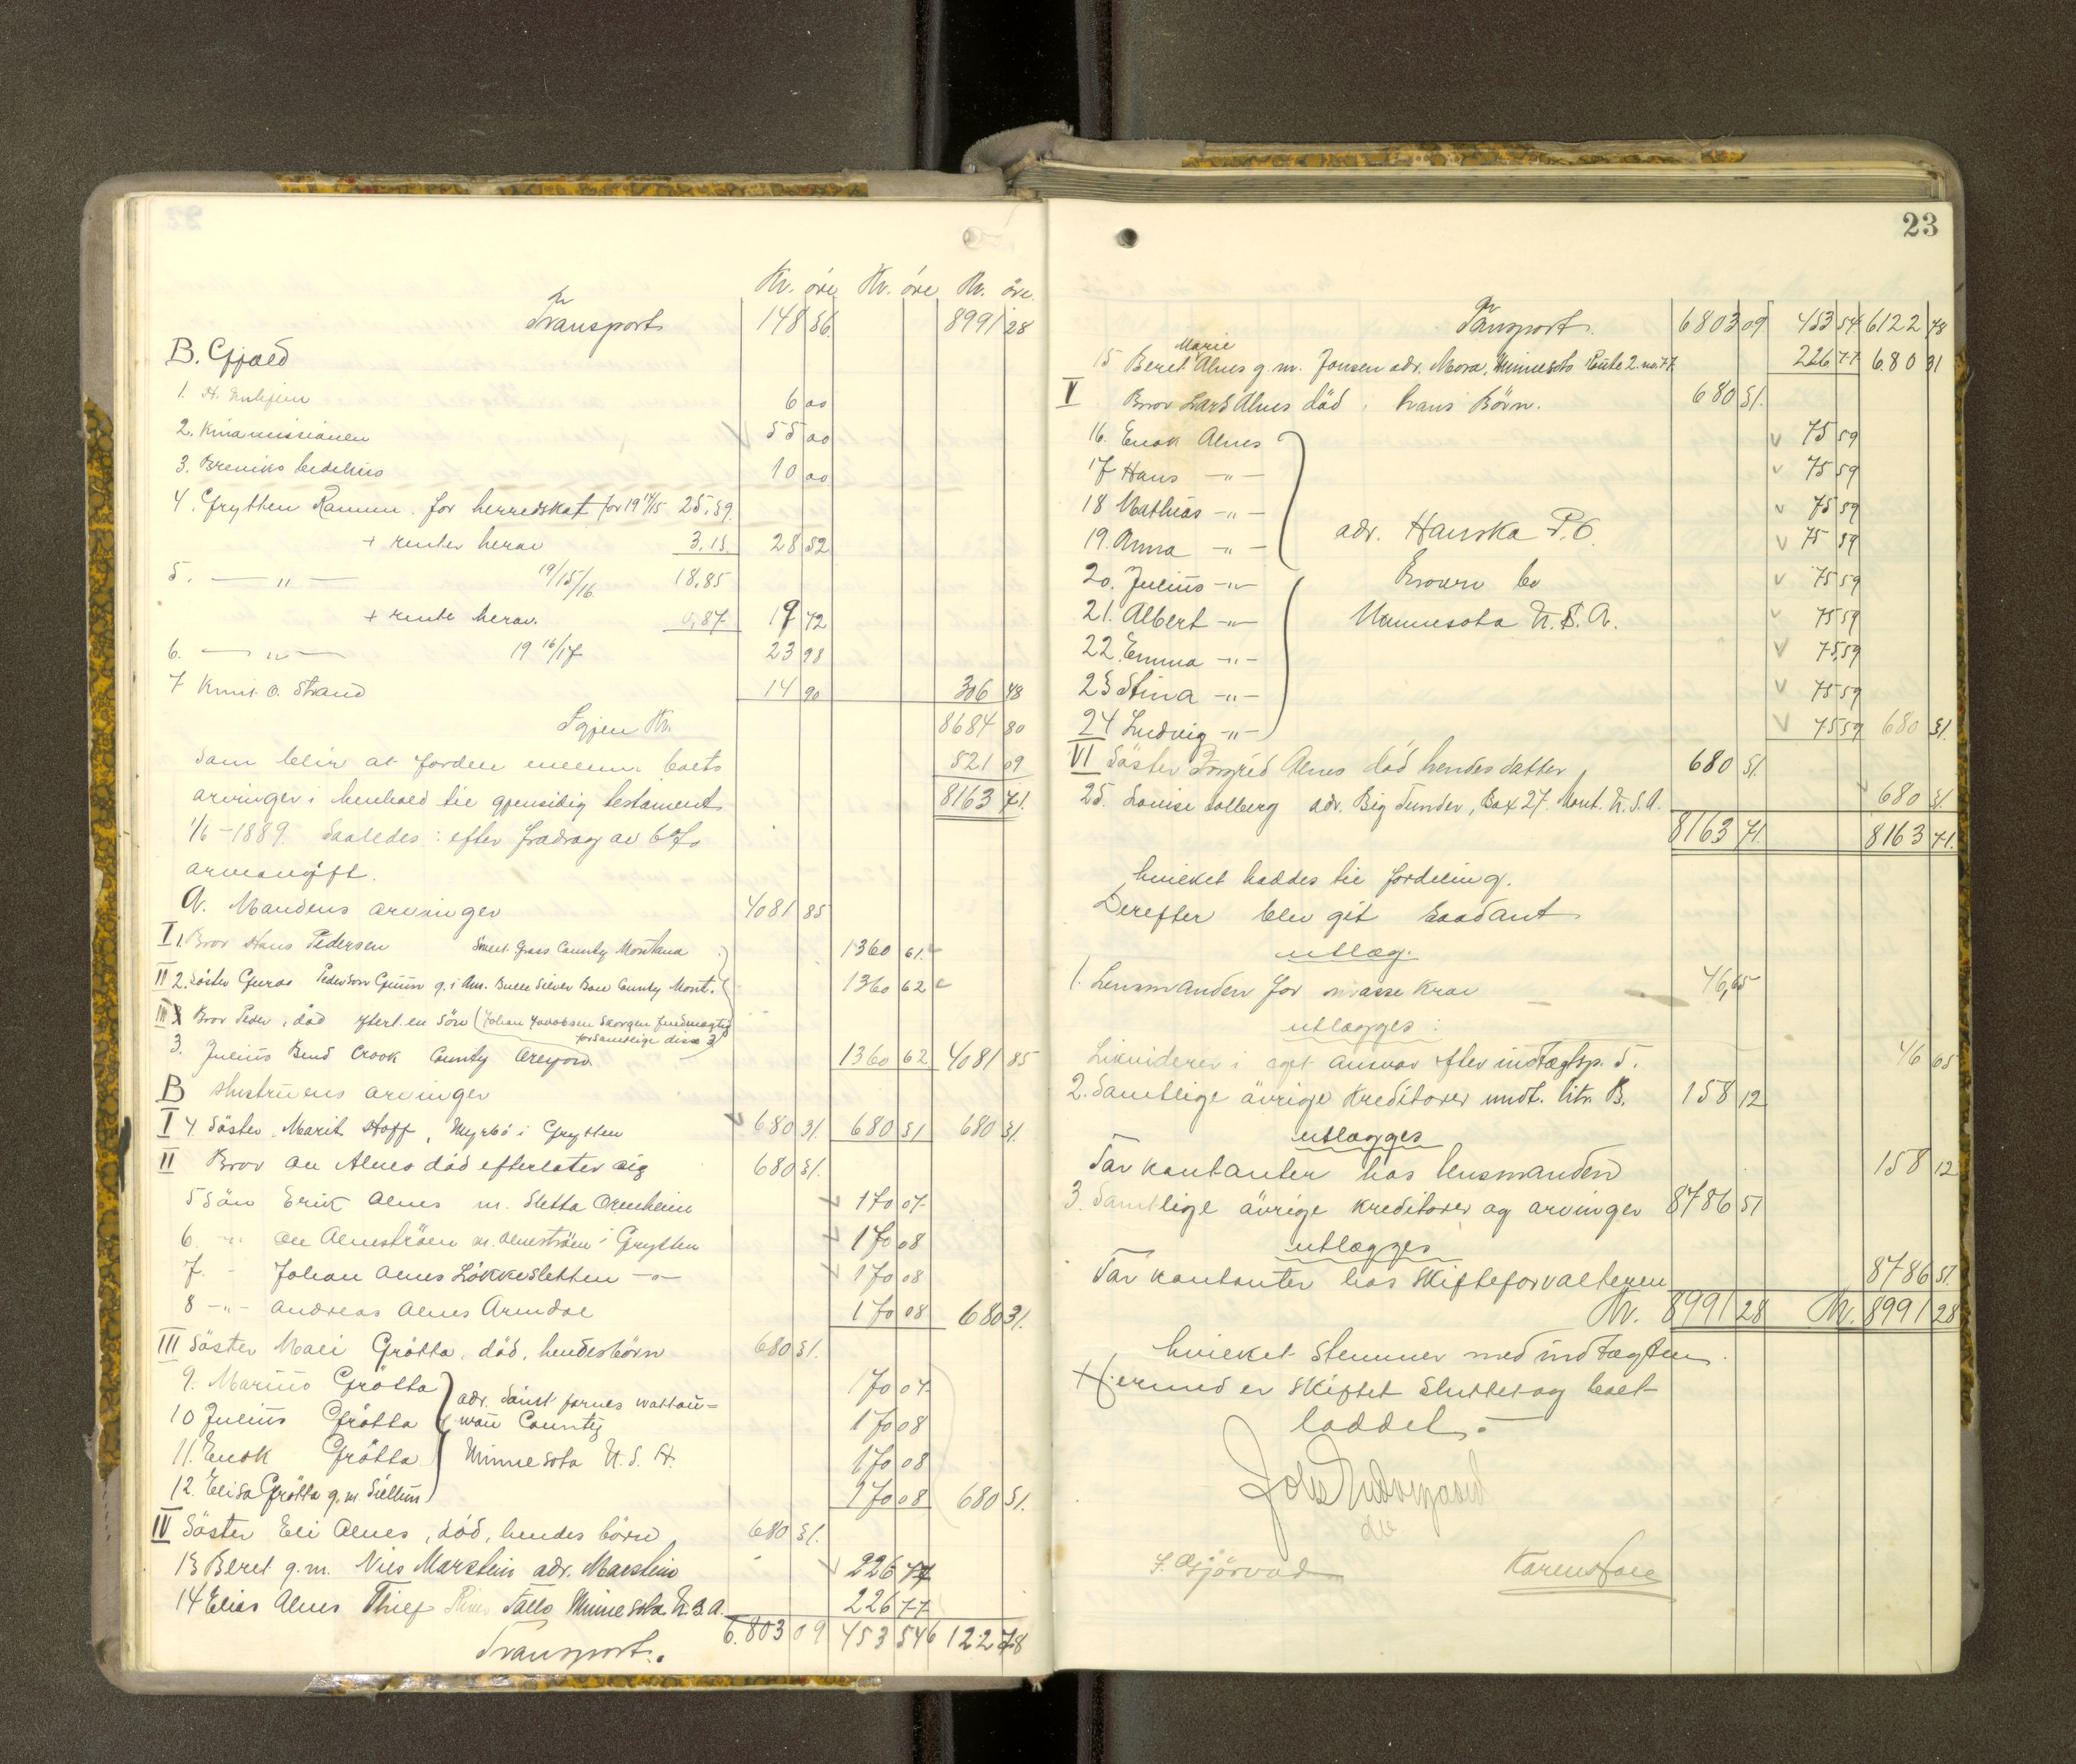 Kr. öre Kr. öre Kr. öre
Transport 148 86 8991 28
B. Gjæld
1. 6 00
2. Kinamissionen 55 00
3. bedehus 10 00
4. Grytten Kommun. for herredskat for 19 14/15 25.39
+ renter herav 3.13 28 52
5. — " — 19/15/16 18.85
+ rente herav. 0,87 19 72
6. — " — 19 16/17 23 98
7 Knut O. Strand 14 90 306 48
Igjen Kr. 8684 80
Som blir at fordele mellem boets 521 09
arvinger i henhold til gjensidig testament 8163 71.
1/6-1889. Saaledes: efter fradrag av 6%
arveavgift.
A. Mandens arvinger 4081 85
I 1. Bror Hans Pedersen Sweet Grass County Montana 1360 61
II 2. Söster Guroe Pederson Gunn g. i Am. Butte Silver Bow County Mont. 1360 62
III Bror Peder, död efterl. en Sön (Johan Jakobsen Skorgen fuldmægtig
for samtlige disse 3)
3. Julius Bend Crook County Oregon 1360 62 4081 85
B Hustruens arvinger
I 4 Söster Marit Hoff, Myrbö i Grytten 680 31. 680 31 680 31.
II Bror Ole Alnes död efterlater sig 680 31.
5 Sön Erik Alnes m. Sletta Orenheim 170 07
6. — " — Ole Alneströen m. Alneströen i Grytten 170 08
7. - Johan Alnes Lökkesletten — " — 170 08
8 — " — Andreas Alnes Aandal 170 08 680 31.
III Söster Mali Grötta, död, hendes börn 680 31.
9. Marius Grötta 170 07
adr. Saint James Watton=
10 Julius Grötta wan County 170 08
11. Enok Grötta Minnesota U. S. A. 170 08
12. Elisa Grötta g. m. 170 08 680 31.
IV Söster Eli Alnes, död, hendes börn 680 31.
13 Beret g. m. Nils Marstein adr. Marstein 226 77
14 Elias Alnes Thief River Falls Minnesota U. S. A. 226 77
Transport. 6.803 09 453 54 6122 78
23
Transport. 6803 09 453 54 6122 78
Marie
15 Beret Alnes g. m. Jonsen adr. Mora, Minnesota Route 2. no. 77. 226 77 680 31
V Bror Lars Alnes död, hans Börn. 680 31.
16. Enok Alnes 75 59
17 Hans — " — 75 59
18 Mathias — " — 75 59
19. Anna — " — adr. Hanska P. O. 75 59
20. Julius — " — Brown Co 75 59
21. Albert — " — Minnesota U. S. A. 75 59
22. Emma — " — 75,59
23 Stina — " — 75 59
24 Ludvig — " — 75 59 680 31.
VI Söster Ingrid Alnes död hendes datter 680 31.
25. Louise Solberg adr. Big Timber, Box 27. Mont. U. S. A. 680 31.
8163 71. 8163 71.
hvilket haddes til fordeling.
Derefter blev git saadant
utlæg.
1. Lensmanden for masse krav 46,65
utlægges:
Likviderer i eget ansvar efter indtægtsp. 5. 46 65
2. Samtlige övrige kreditorer undt. litr. B. 158 12
utlægges
Tar kontanter hos lensmanden 158 12
3. Samtlige övrige kreditorer og arvinger 8786 51
utlægges
Tar kontanter hos skifteforvalteren 8786 51.
Kr. 8991 28 Kr. 8991 28
hvilket stemmer med indtægten.
Hermed er skiftet sluttet og boet
loddet. —